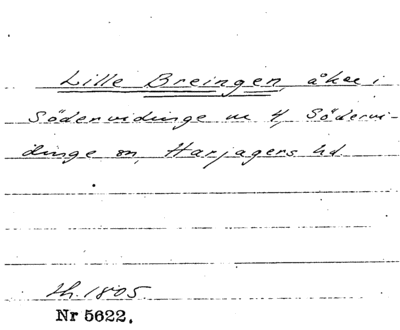 Lille Breingen, åker i
Södervidinge nr 4, Södervi-
dinge sn, Harjagers hd.
th. 1805
Nr 5622.